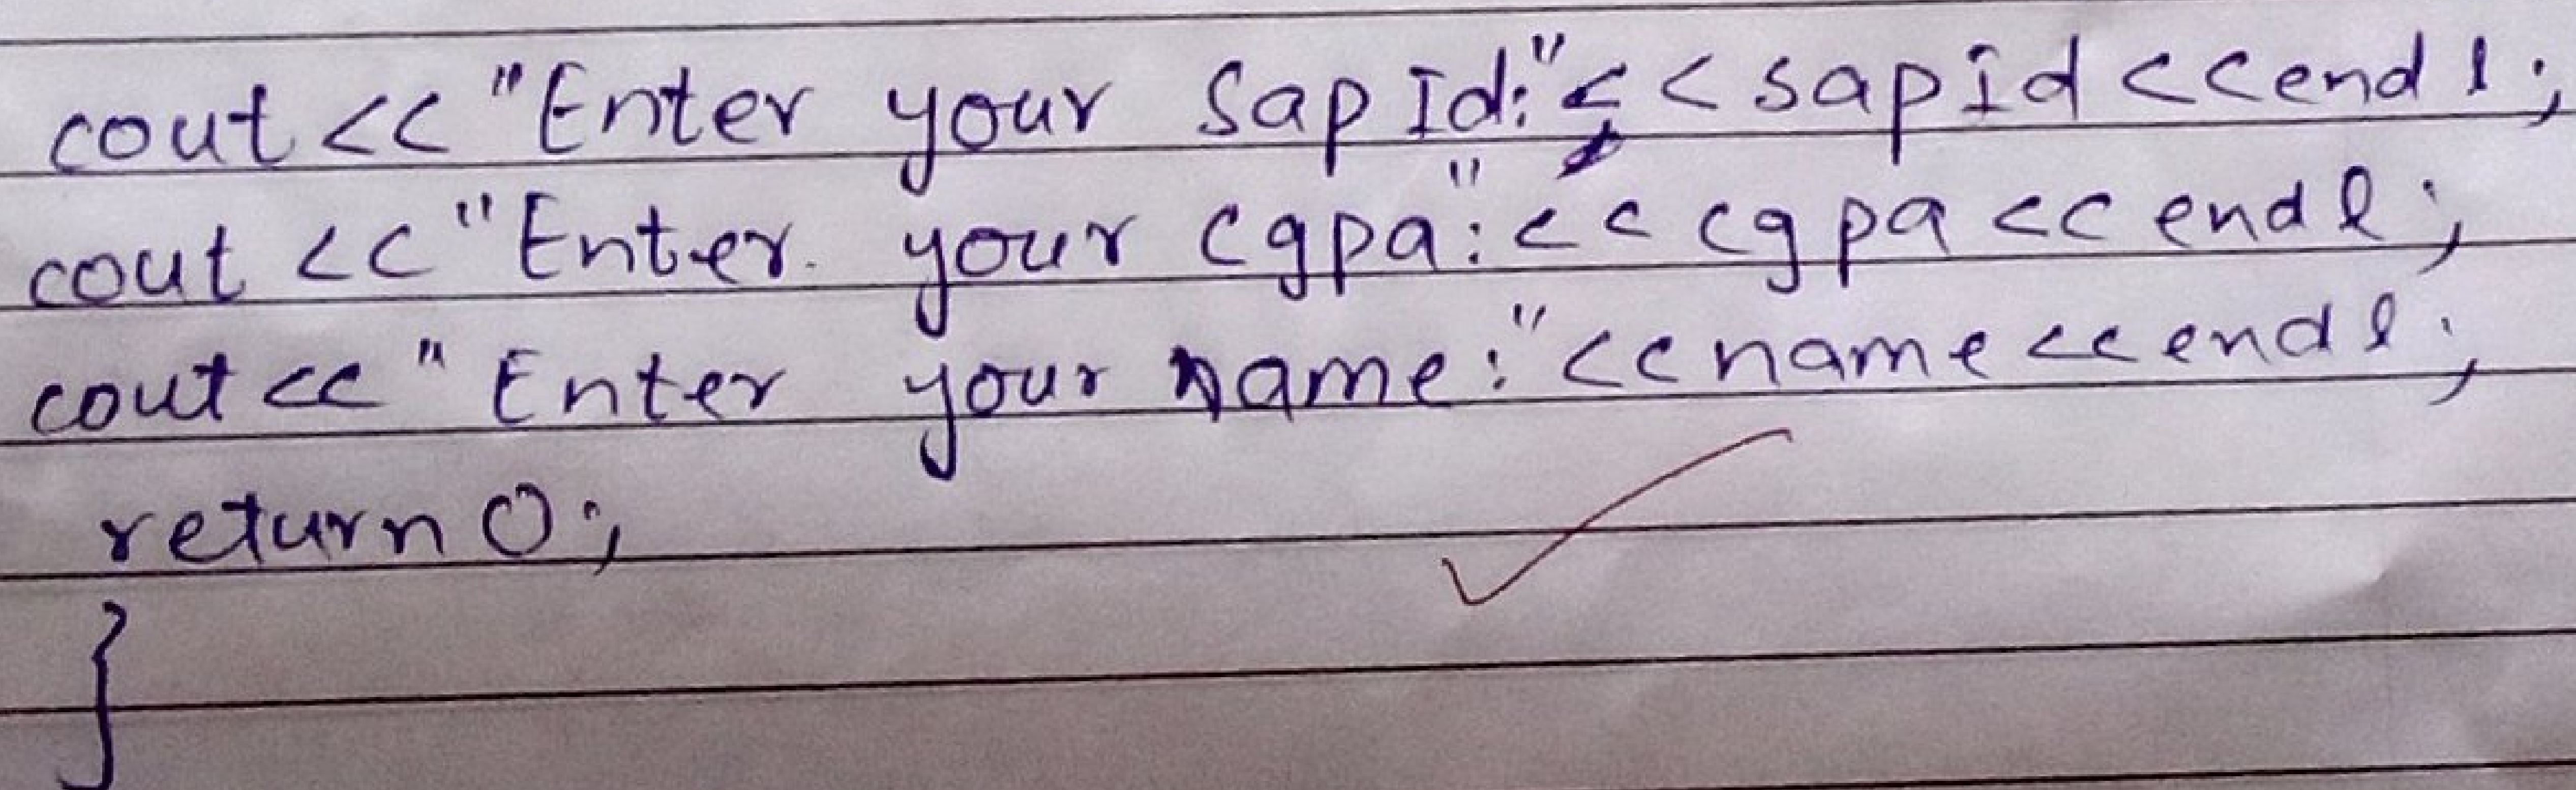 cout << "Enter your Sap Id:" << sapid << endl;
cout << "Enter your cgpa:" << cgpa << endl;
cout << "Enter your name:" << name << endl;
return 0;
}